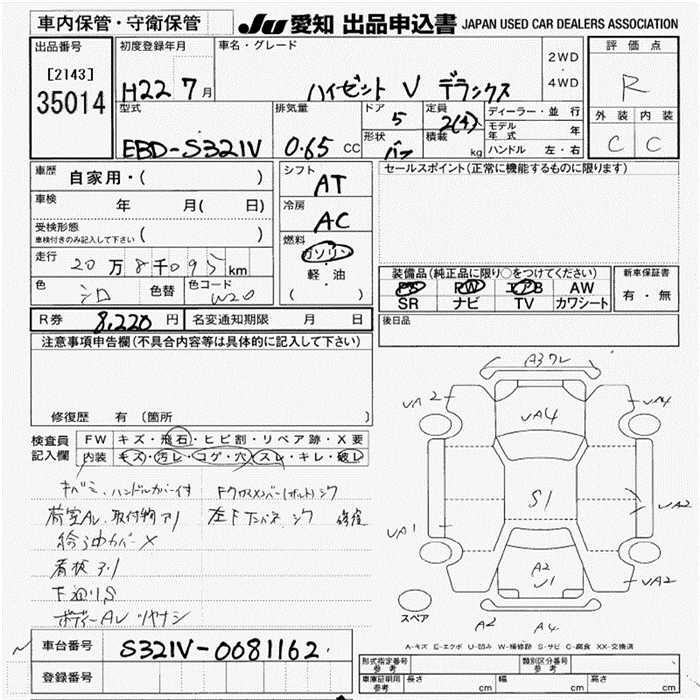 車内保管・守衛保管
JU 愛知 出品申込書 JAPAN USED CAR DEALERS ASSOCIATION
出品番号
[2143]
35014
初度登録年月
H22 7月
車名・グレード
ハイゼット V デラックス
2WD
・
4WD
評価点
R
外装 内装
C C
型式
EBD-S321V
排気量
0.65 CC
ドア
5
形状
バン
定員
2(4)
積載
kg
ディーラー・並行
モデル年式 年
ハンドル 左・右
車歴
自家用・( )
車検
年 月( 日)
受検形態
車検付きのみ記入して下さい ( )
走行
20万8千095km
色
シロ
色替
色コード
W20
シフト
AT
冷房
AC
燃料
ガソリン
・
軽・油
( )
セールスポイント(正常に機能するものに限ります)
装備品(純正品に限り○をつけてください)
PS PW エアB AW
SR ナビ TV カワシート
新車保証書
有・無
R券 8,220円 名変通知期限 月 日
後日品
注意事項申告欄(不具合内容等は具体的に記入して下さい)
修復歴 有 (箇所 )
検査員
記入欄
FW キズ・飛石・ヒビ割・リペア跡・X要
内装 キズ・汚レ・コゲ・穴・スレ・キレ・破レ
キバミ、ハンドルカバー付
荷室AU、取付物アリ
カバーX
看板アリ
下廻りS
ボディーAU ツヤナシ
A3ワレ
UA2
UA4
UA4
S1
UA2
UA1
A2
U1
UA2
スペア
A2
A4
A-キズ E-エクボ U-凹み W-補修跡 S-サビ C-腐食 XX-交換済
車台番号 S321V-0081162
登録番号
形式指定番号
参考
類別区分番号
参考
車庫証明用
参考
長さ cm 幅 cm 高さ cm